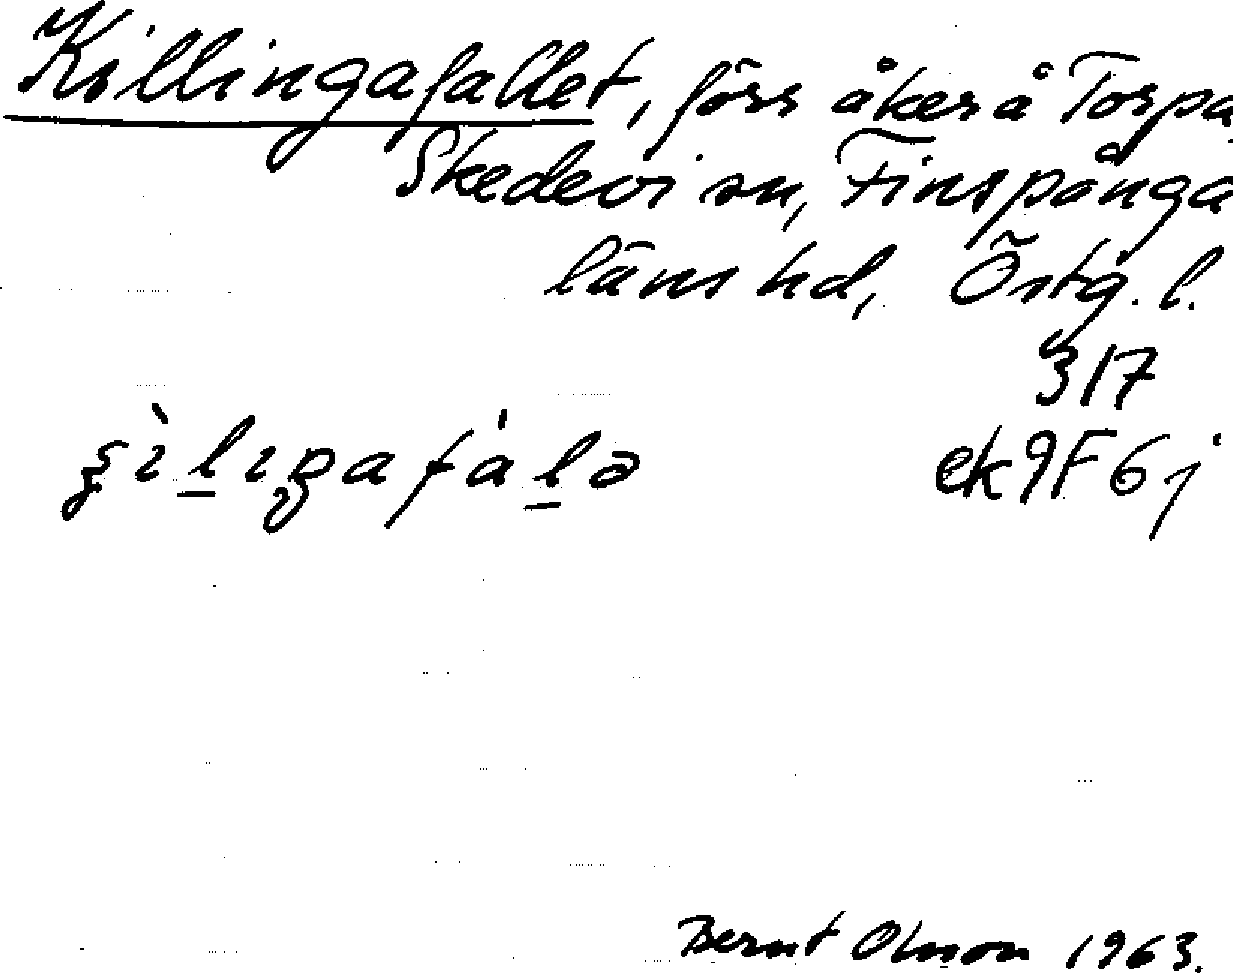 Killingafallet, förr åker å Torpa,
Skedevi sn, Finspånga
läns hd, Östg. l.
317
ek 9F6j
Bernt Olsson 1963.